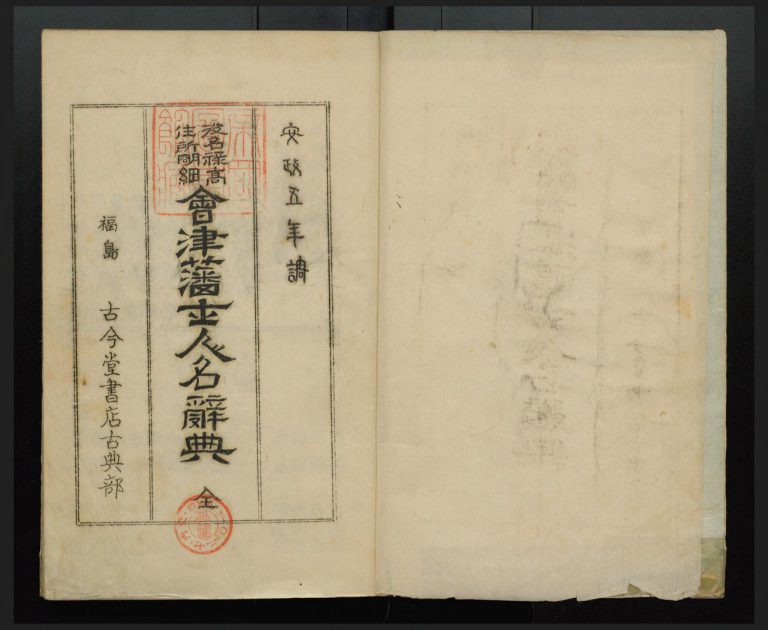 安政五年調
役名祿高
住所明細
會津藩士人名辭典 全
福島 古今堂書店古典部